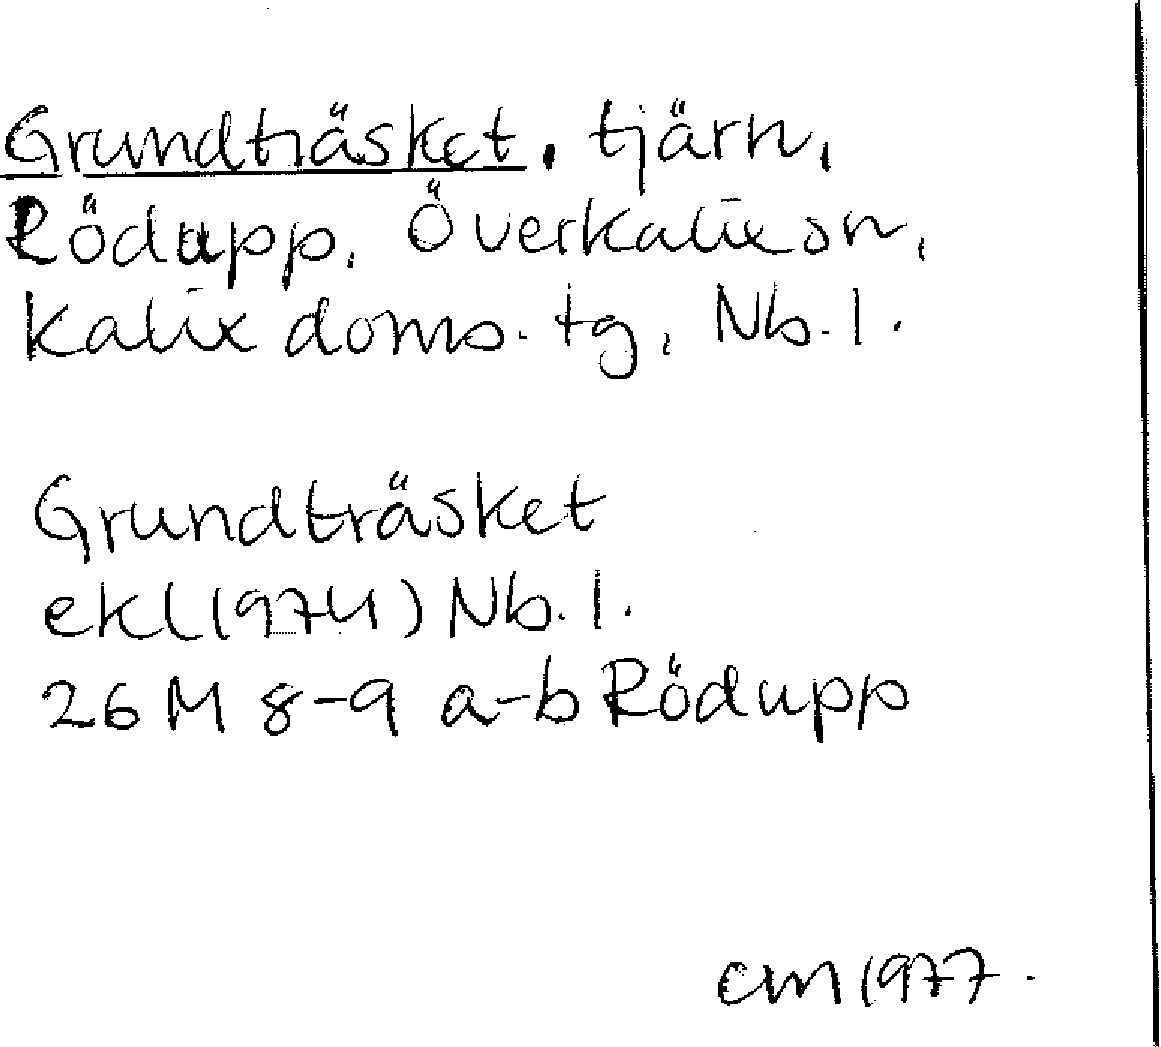 Grundträsket, tjärn,
Rödupp, Överkalix sn,
Kalix doms. tg, Nb. l.
Grundträsket
ekl(1974) Nb. l.
26 M 8-9 a-b Rödupp
CM 1977.